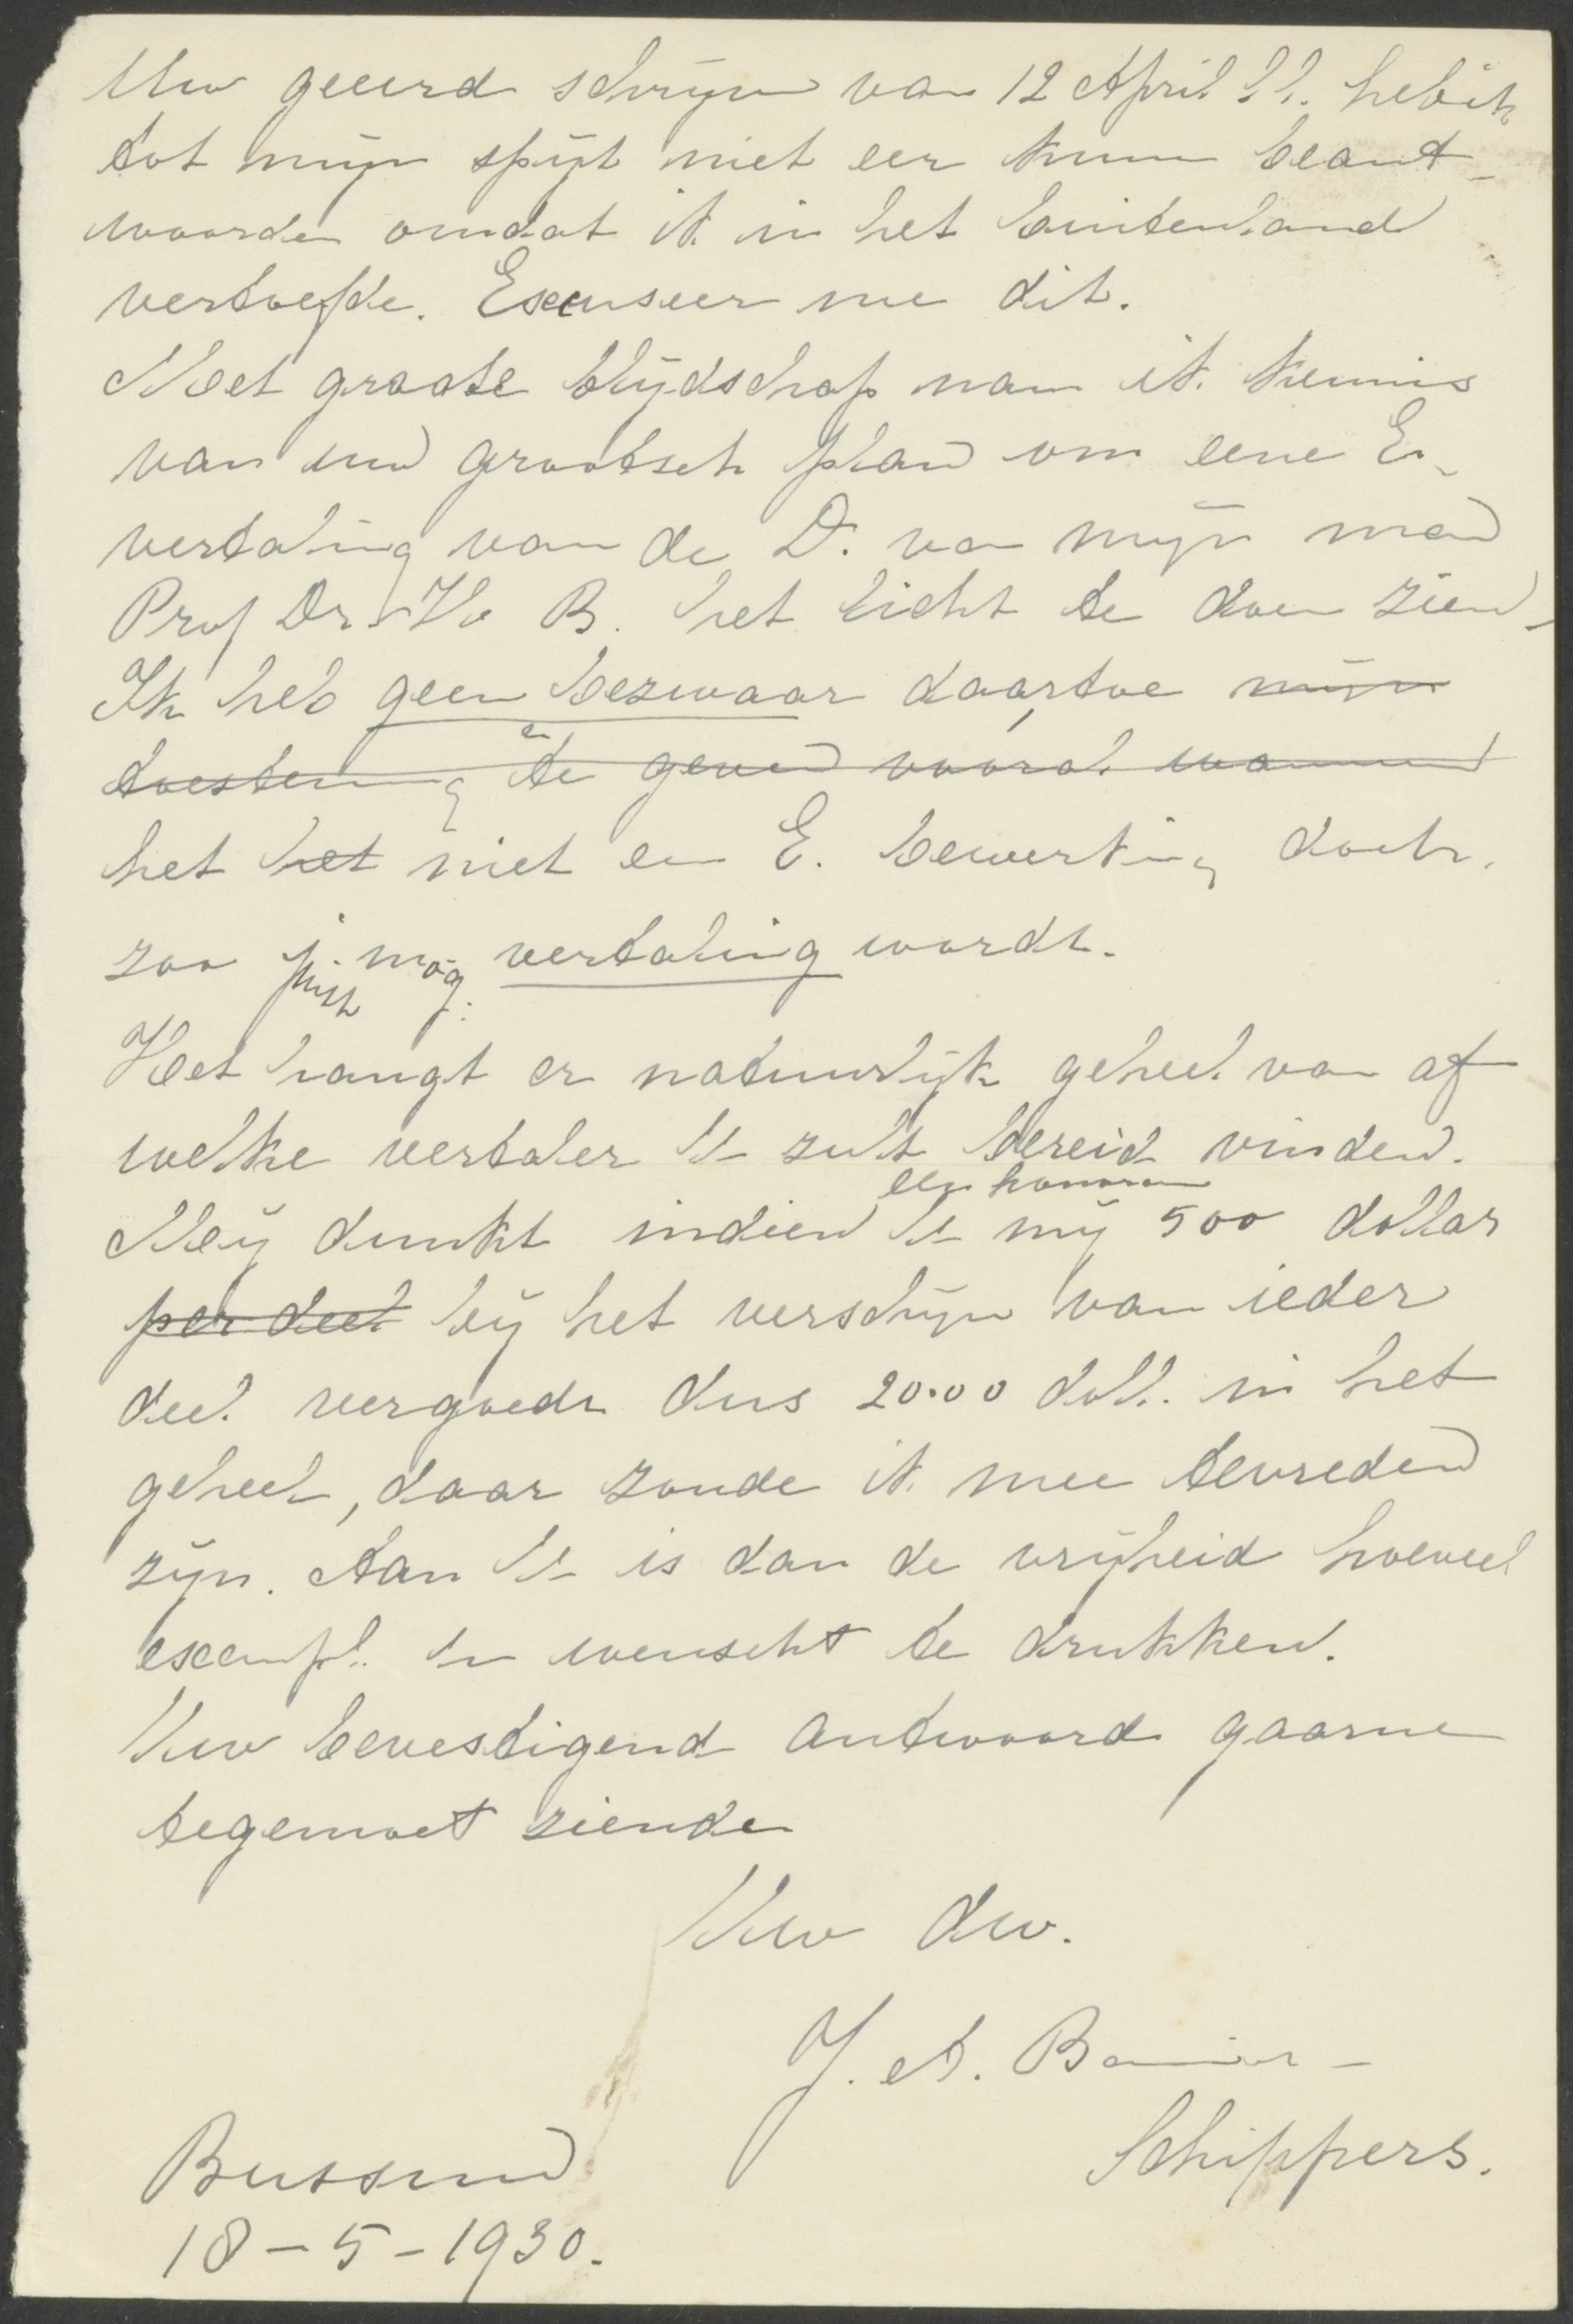 Uw geeerd schrijven van 12 April l.l. heb ik
tot mijn spijt niet eer kunnen beant-
woorden omdat ik in het buitenland
vertoefde. Excuseer me dit.
Met groote blijdschap nam ik kennis
van uw grootsch plan om eene E.
vertaling van de D. van mijn man
Prof Dr H. B. het licht te doen zien.
Ik heb geen bezwaar daartoe mijn
toestemming te geven vooral wanneer
het het niet een E. bewerking doch
zoo j. mog. vertaling wordt.
juist
Het hangt er natuurlijk geheel van af
welke vertaler U zult bereid vinden.
een honorar
Mij dunkt indien U mij 500 dollar
per deel bij het verschijnen van ieder
deel vergoedt dus 20.00 doll. in het
geheel, daar zoude ik mee tevreden
zijn. Aan U is dan de vrijheid hoeveel
exempl. U wenscht te drukken.
Uw bevestigend antwoord gaarne
tegemoet ziende
Uw dw.
J. A. Bavinck-
Schippers.
Bussum
18-5-1930.